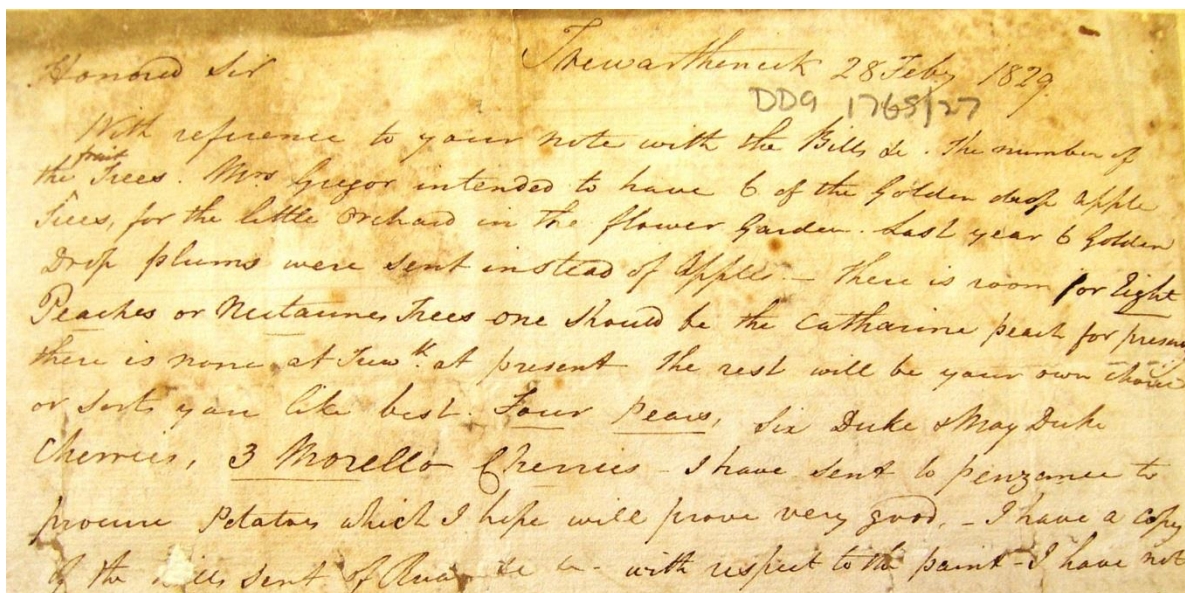 Trewarthenick 28 Feby 1829.
Honored Sir
DDG 1768/27
With reference to your note with the Bills &c. The number of
the fruit Trees. Mrs Gregor intended to have 6 of the Golden drop apple
Trees, for the little Orchard in the flower Garden. Last year 6 Golden
Drop plums were sent instead of Apples – there is room for Eight
Peaches or Nectarines Trees one should be the Catharine peach for
there is none at Trewk. at present the rest will be your own choice
or sorts you like best. Four Pears, Six Duke & May Duke
Cherries, 3 Morello Cherries – I have sent to penzance to
procure Potatoes which I hope will prove very good, – I have a copy
of the Bills sent of &c – with respect to the paint – I have not